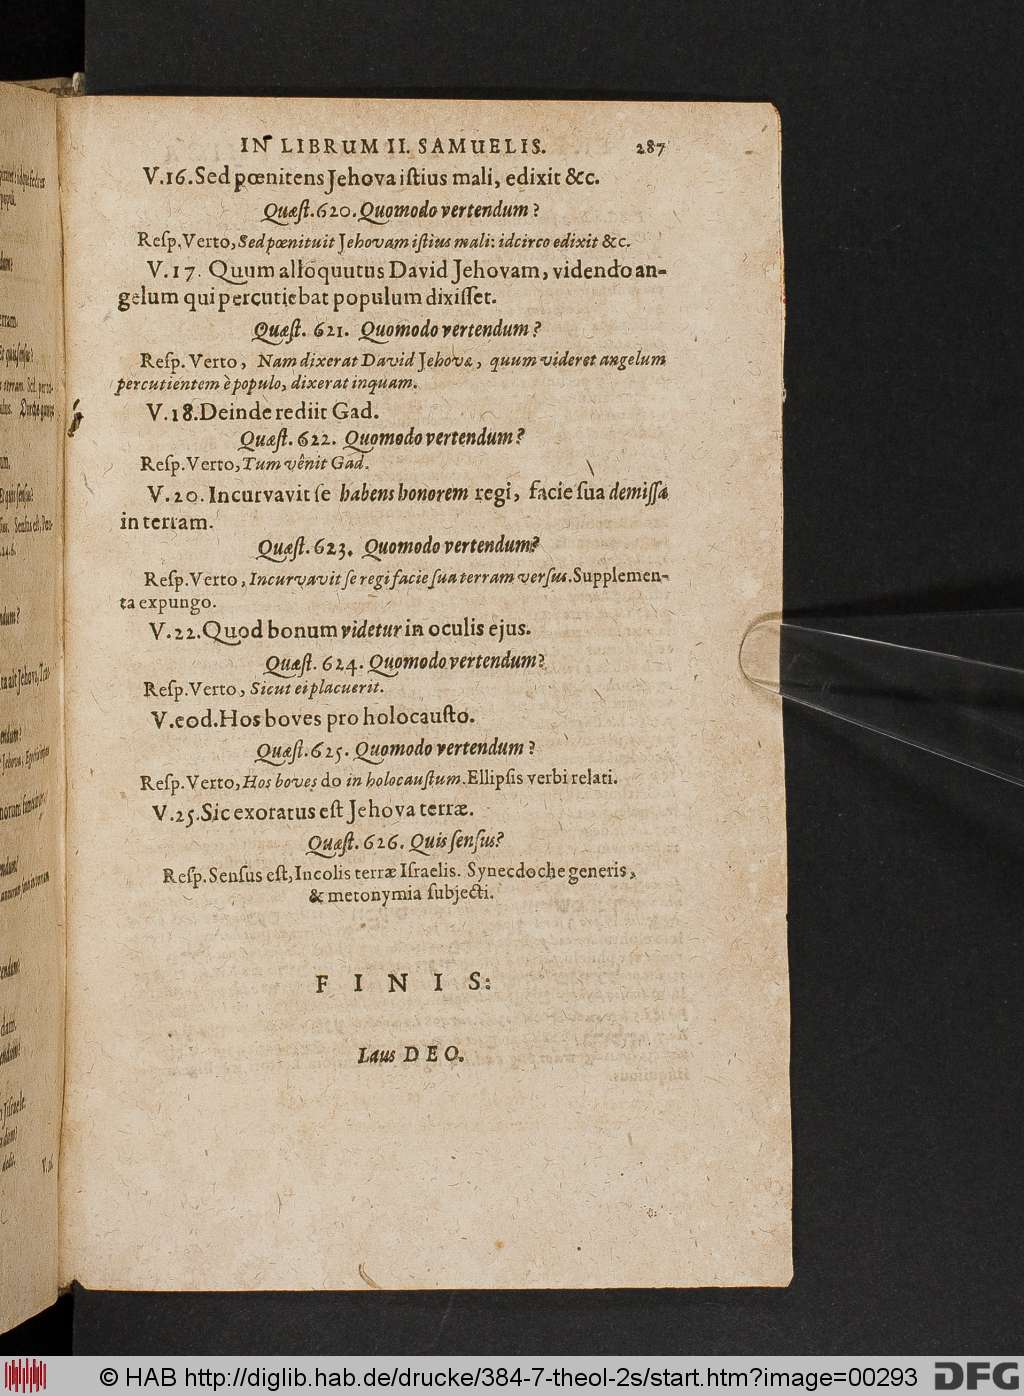 IN LIBRUM II. SAMUELIS. 287
V.16. Sed pœnitens Jehova iſtius mali, edixit &c.
Quæſt. 620. Quomodo vertendum?
Reſp. Verto, Sed pœnituit Jehovam iſtius mali: idcirco edixit &c.
V.17. Quum alloquutus David Jehovam, videndo an-
gelum qui percutiebat populum dixiſſet.
Quæſt. 621. Quomodo vertendum?
Reſp. Verto, Nam dixerat David Jehovæ, quum videret angelum
percutientem è populo, dixerat inquam.
V.18. Deinde rediit Gad.
Quæſt. 622. Quomodo vertendum?
Reſp. Verto, Tum vênit Gad.
V.20. Incurvavit ſe habens honorem regi, facie ſua demiſſa
in terram.
Quæſt. 623. Quomodo vertendum?
Reſp. Verto, Incurvavit ſe regi facie ſua terram verſus. Supplemen-
ta expungo.
V.22. Quod bonum videtur in oculis ejus.
Quæſt. 624. Quomodo vertendum?
Reſp. Verto, Sicut ei placuerit.
V.eod. Hos boves pro holocauſto.
Quæſt. 625. Quomodo vertendum?
Reſp. Verto, Hos boves do in holocauſtum. Ellipſis verbi relati.
V.25. Sic exoratus eſt Jehova terræ.
Quæſt. 626. Quis ſenſus?
Reſp. Senſus eſt, Incolis terræ Iſraelis. Synecdoche generis,
& metonymia ſubjecti.
FINIS:
Laus DEO.
© HAB http://diglib.hab.de/drucke/384-7-theol-2s/start.htm?image=00293
DFG